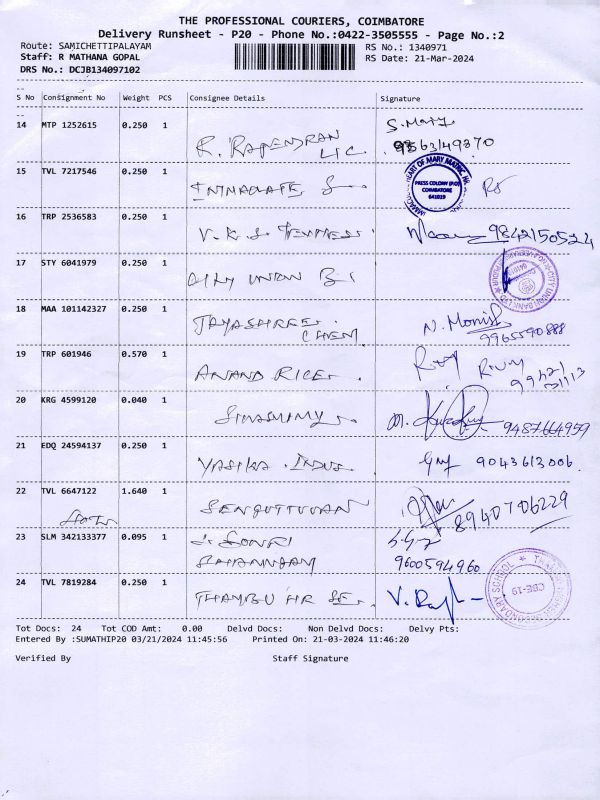 THE PROFESSIONAL COURIERS, COIMBATORE
Delivery Runsheet - P20 - Phone No.:0422-3505555 - Page No.:2
Route: SAMICHETTIPALAYAM RS No.: 1340971
Staff: R MATHANA GOPAL RS Date: 21-Mar-2024
DRS No.: DCJB134097102
S No Consignment No Weight PCS Consignee Details Signature
14 MTP 1252615 0.250 1 R. RAJENDRAN LIC
15 TVL 7217546 0.250 1
IMMACULATE HEART OF MARY MATRIC
PRESS COLONY (PO)
COIMBATORE
641019
16 TRP 2536583 0.250 1 V.K.S. 9842150524
17 STY 6041979 0.250 1 CITY UNION B
CITY UNION BANK LTD
18 MAA 101142327 0.250 1 JAYASHREE CHEM N. Monish
9965590888
19 TRP 601946 0.570 1 ANAND RICE
20 KRG 4599120 0.040 1 9487664959
21 EDQ 24594137 0.250 1 YASIKA INDUS 9043613006
22 TVL 6647122 1.640 1 SENGUTTUVAN 8940706229
23 SLM 342133377 0.095 1 9600594960
24 TVL 7819284 0.250 1 THAMBU HR SE.
SECONDARY SCHOOL
CBE-19
Tot Docs: 24 Tot COD Amt: 0.00 Delvd Docs: Non Delvd Docs: Delvy Pts:
Entered By :SUMATHIP20 03/21/2024 11:45:56 Printed On: 21-03-2024 11:46:20
Verified By Staff Signature